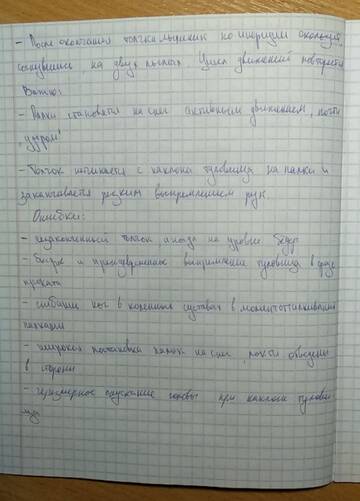 - После окончания толчка лыжник по инерции скользит,
согнувшись на двух лыжах. Цикл движений повторяется
Важно:
- Палки ставятся на снег активным движением, почти
"ударом"
- Толчок начинается с наклона туловища на палки и
заканчивается резким выпрямлением рук.
Ошибки:
- незаконченный толчок назад на уровне бедер
- быстрое и преждевременное выпрямление туловища в фазе
проката
- сгибание ног в коленных суставах в момент отталкивания
палками
- широкая постановка палок на снег, локти отведены
в стороны
- чрезмерное опускание головы при наклоне тулови